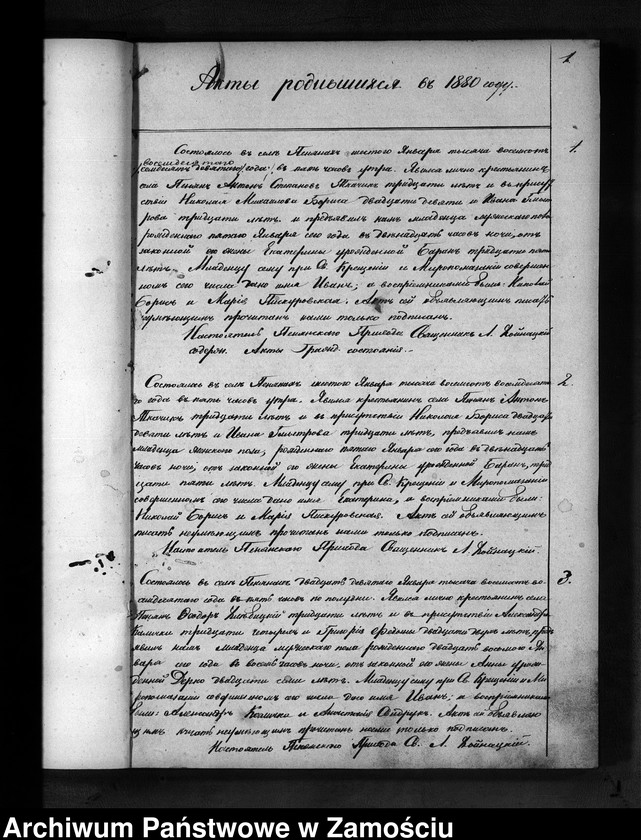 1
Акты родившихся въ 1880 году.
1.
Состоялось въ селѣ Пенянахъ шестого Января тысяча восемьсотъ
восемдесятого
года въ пять часовъ утра. Явился лично крестьянинъ
села Антонъ Степановъ Ткачикъ тридцати лѣтъ и въ присут
ствіи Николая Бориса двадцати девяти и Ивана
рова тридцати лѣтъ, и предъявилъ намъ младенца мужескаго пола
рожденнаго пятаго Января сего года въ двѣнадцать часовъ ночи, отъ
законной его жены Екатерины урожденной Баранъ тридцати пяти
лѣтъ. Младенцу сему при Св. Крещеніи и Миропомазаніи совершен
номъ сего числа дано имя Иванъ; а воспріемниками были: Николай
Борисъ и Марія Пискуровская. Актъ сей объявляющимъ писать
неумѣющимъ прочитанъ нами только подписанъ.
Настоятель Пенянскаго Прихода Священникъ Л. Войнацкій
содерж. Акты Гражд. состоянія.
2.
Состоялось въ селѣ Пенянахъ шестого Января тысяча восемьсотъ восемдесята
го года въ пять часовъ утра. Явился крестьянинъ села Пенянъ Антонъ
Ткачикъ тридцати лѣтъ и въ присутствіи Николая Бориса двадцати
девяти лѣтъ и Ивана тридцати лѣтъ, предъявилъ намъ
младенца женскаго пола, рожденнаго пятаго Января сего года въ двѣнадцать
часовъ ночи, отъ законной его жены Екатерины урожденной Баранъ, трид
цати пяти лѣтъ. Младенцу сему при Св. Крещеніи и Миропомазаніи
совершенномъ сего числа дано имя Екатерина, а воспріемниками были:
Николай Борисъ и Марія Пискуровская. Актъ сей объявляющимъ
писать неумѣющимъ прочитанъ нами только подписанъ.
Настоятель Пенянскаго Прихода Священникъ Л. Войнацкій.
3.
Состоялось въ селѣ Пенянахъ двадцать девятаго Января тысяча восемьсотъ во
семдесятаго года въ пять часовъ по полудни. Явился лично крестьянинъ села
Пенянъ Ѳеодоръ тридцати лѣтъ и въ присутствіи Александра
Калички тридцати четырехъ и Григорія двадцати двухъ лѣтъ, предъ
явилъ намъ младенца мужескаго пола рожденнаго двадцать восьмаго Ян
варя сего года въ восемь часовъ ночи, отъ законной его жены Анны урож
денной двадцати семи лѣтъ. Младенцу сему при Св. Крещеніи и Ми
ропомазаніи совершенномъ сего числа дано имя Иванъ; а воспріемниками
были: Александръ Каличка и Анастасія. Актъ сей объявляю
щимъ писать неумѣющимъ прочитанъ нами только подписанъ.
Настоятель Пенянскаго Прихода Св. Л. Войнацкій.
Archiwum Państwowe w Zamościu